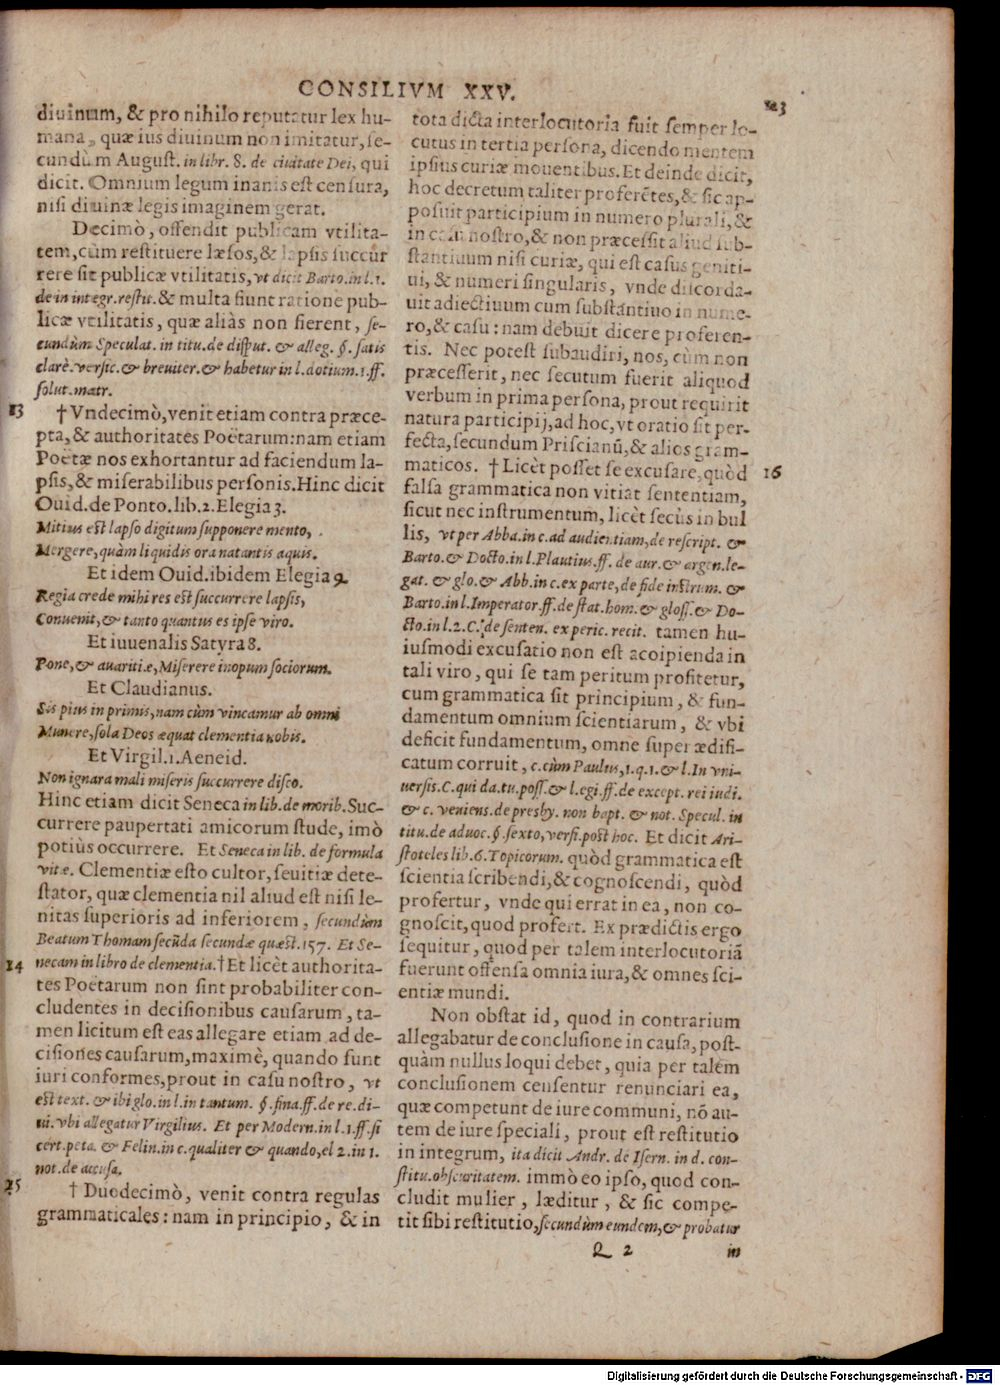 CONSILIVM XXV.
diuinum, & pro nihilo reputatur lex hu-
mana, quæ ius diuinum non imitatur, se-
cundùm August. in libr. 8. de ciuitate Dei, qui
dicit. Omnium legum inanis est censura,
nisi diuinæ legis imaginem gerat.
Decimò, offendit publicam vtilita-
tem, cùm restituere læsos, & lapsis succur
rere sit publicæ vtilitatis, vt dicit Barto. in l. 1.
de in integr. restit. & multa fiunt ratione pub-
licæ vtilitatis, quæ aliàs non fierent, se-
cundùm Speculat. in titu. de disput. & alleg. §. satis
clarè. versic. & breuiter. & habetur in l. dotium. 1. ff.
solut. matr.
13 † Vndecimò, venit etiam contra præce-
pta, & authoritates Poëtarum: nam etiam
Poëtæ nos exhortantur ad faciendum la-
psis, & miserabilibus personis. Hinc dicit
Ouid. de Ponto. lib. 2. Elegia 3.
Mitius est lapso digitum supponere mento,
Mergere, quàm liquidis ora natantis aquis.
Et idem Ouid. ibidem Elegia 9.
Regia crede mihi res est succurrere lapsis,
Conuenit, & tanto quantus es ipse viro.
Et iuuenalis Satyra 8.
Pone, & auaritiæ, Miserere inopum sociorum.
Et Claudianus.
Sis pius in primis, nam cùm vincamur ab omni
Munere, sola Deos æquat clementia nobis.
Et Virgil. 1. Aeneid.
Non ignara mali miseris succurrere disco.
Hinc etiam dicit Seneca in lib. de morib. Suc-
currere paupertati amicorum stude, imò
potiùs occurrere. Et Seneca in lib. de formula
vitæ. Clementiæ esto cultor, seuitiæ dete-
stator, quæ clementia nil aliud est nisi le-
nitas superioris ad inferiorem, secundùm
Beatum Thomam secũda secundæ quæst. 157. Et Se-
14 necam in libro de clementia. † Et licèt authorita-
tes Poëtarum non sint probabiliter con-
cludentes in decisionibus causarum, ta-
men licitum est eas allegare etiam ad de-
cisiones causarum, maximè, quando sunt
iuri conformes, prout in casu nostro, vt
est text. & ibi glo. in l. in tantum. §. fina. ff. de re. di-
ui. vbi allegatur Virgilius. Et per Modern. in l. 1. ff. si
cert. peta. & Felin. in c. qualiter & quando, el 2. in 1.
not. de accusa.
15 † Duodecimò, venit contra regulas
grammaticales: nam in principio, & in
tota dicta interlocutoria fuit semper lo-
cutus in tertia persona, dicendo mentem
ipsius curiæ mouentibus. Et deinde dicit,
hoc decretum taliter proferẽtes, & sic ap-
posuit participium in numero plurali, &
in casu nostro, & non præcessit aliud sub-
stantiuum nisi curiæ, qui est casus geniti-
ui, & numeri singularis, vnde discorda-
uit adiectiuum cum substantiuo in nume-
ro, & casu: nam debuit dicere proferen-
tis. Nec potest subaudiri, nos, cùm non
præcesserit, nec secutum fuerit aliquod
verbum in prima persona, prout requirit
natura participij, ad hoc, vt oratio sit per-
fecta, secundum Priscianũ, & alios gram-
maticos. † Licèt posset se excusare, quòd 16
falsa grammatica non vitiat sententiam,
sicut nec instrumentum, licèt secùs in bul
lis, vt per Abba. in c. ad audientiam, de rescript. &
Barto. & Docto. in l. Plautius. ff. de aur. & argen. le-
gat. & glo. & Abb. in c. ex parte, de fide instrum. &
Barto. in l. Imperator. ff. de stat. hom. & gloss. & Do-
cto. in l. 2. C. de senten. ex peric. recit. tamen hu-
iusmodi excusatio non est acoipienda in
tali viro, qui se tam peritum profitetur,
cum grammatica sit principium, & fun-
damentum omnium scientiarum, & vbi
deficit fundamentum, omne super ædifi-
catum corruit, c. cùm Paulus, 1. q. 1. & l. In vni-
uersis. C. qui da. tu. poss. & l. egi. ff. de except. rei iudi.
& c. veniens. de presby. non bapt. & not. Specul. in
titu. de aduoc. §. sexto, versi. post hoc. Et dicit Ari-
stoteles lib. 6. Topicorum. quòd grammatica est
scientia scribendi, & cognoscendi, quòd
profertur, vnde qui errat in ea, non co-
gnoscit, quod profert. Ex prædictis ergo
sequitur, quod per talem interlocutoriã
fuerunt offensa omnia iura, & omnes sci-
entiæ mundi.
Non obstat id, quod in contrarium
allegabatur de conclusione in causa, post-
quàm nullus loqui debet, quia per talem
conclusionem censentur renunciari ea,
quæ competunt de iure communi, nõ au-
tem de iure speciali, prout est restitutio
in integrum, ita dicit Andr. de Isern. in d. con-
stitu. obscuritatem. immò eo ipso, quod con-
cludit mulier, læditur, & sic compe-
tit sibi restitutio, secundùm eundem, & probatur
R 2 in
Digitalisierung gefördert durch die Deutsche Forschungsgemeinschaft - DFG